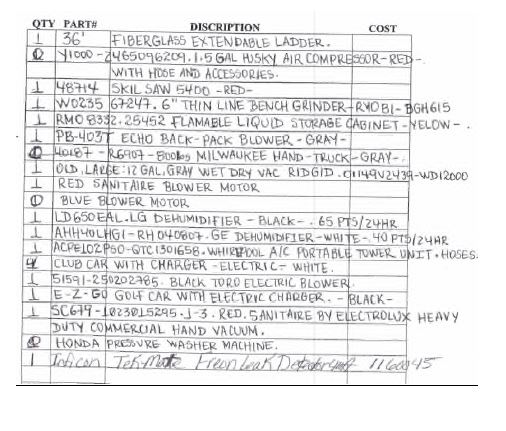 QTY PART# DISCRIPTION COST
1 36' FIBERGLASS EXTENDABLE LADDER.
Y1000-2465096209.1.5 GAL HUSKY AIR COMPRESSOR-RED-.
WITH HOSE AND ACCESSORIES.
1 48714 SKIL SAW 5400 -RED-
1 W0235 67247. 6" THIN LINE BENCH GRINDER-RYOBI-BGH615
1 RMO 8332.25452 FLAMABLE LIQUID STORAGE CABINET-YELOW-.
1 PB-403T ECHO BACK-PACK BLOWER -GRAY-
40187 -R6907-800lbs MILWAUKEE HAND-TRUCK-GRAY-.
1 OLD, LARGE:12 GAL, GRAY WET DRY VAC RIDGID.01149V2439-WD12000
1 RED SANITAIRE BLOWER MOTOR
BLUE BLOWER MOTOR
1 LD650EAL.LG DEHUMIDIFIER -BLACK-. 65 PTS/24HR
1 AHH40LHG1-RH040807.GE DEHUMIDIFIER-WHITE-.40 PTS/24HR
1 ACPE102P50-QTC1301658.WHIRLPOOL A/C PORTABLE TOWER UNIT.HOSES.
4 CLUB CAR WITH CHARGER -ELECTRIC- WHITE.
1 51591-250202785. BLACK TORO ELECTRIC BLOWER.
1 E-Z-GO GOLF CAR WITH ELECTRIC CHARGER. -BLACK-
1 SC679-1023015295.J-3. RED. SANITAIRE BY ELECTROLUX HEAVY
DUTY COMMERCIAL HAND VACUUM.
HONDA PRESSURE WASHER MACHINE.
1 Inficon Tek-Mate Freon Leak Detector 1160045